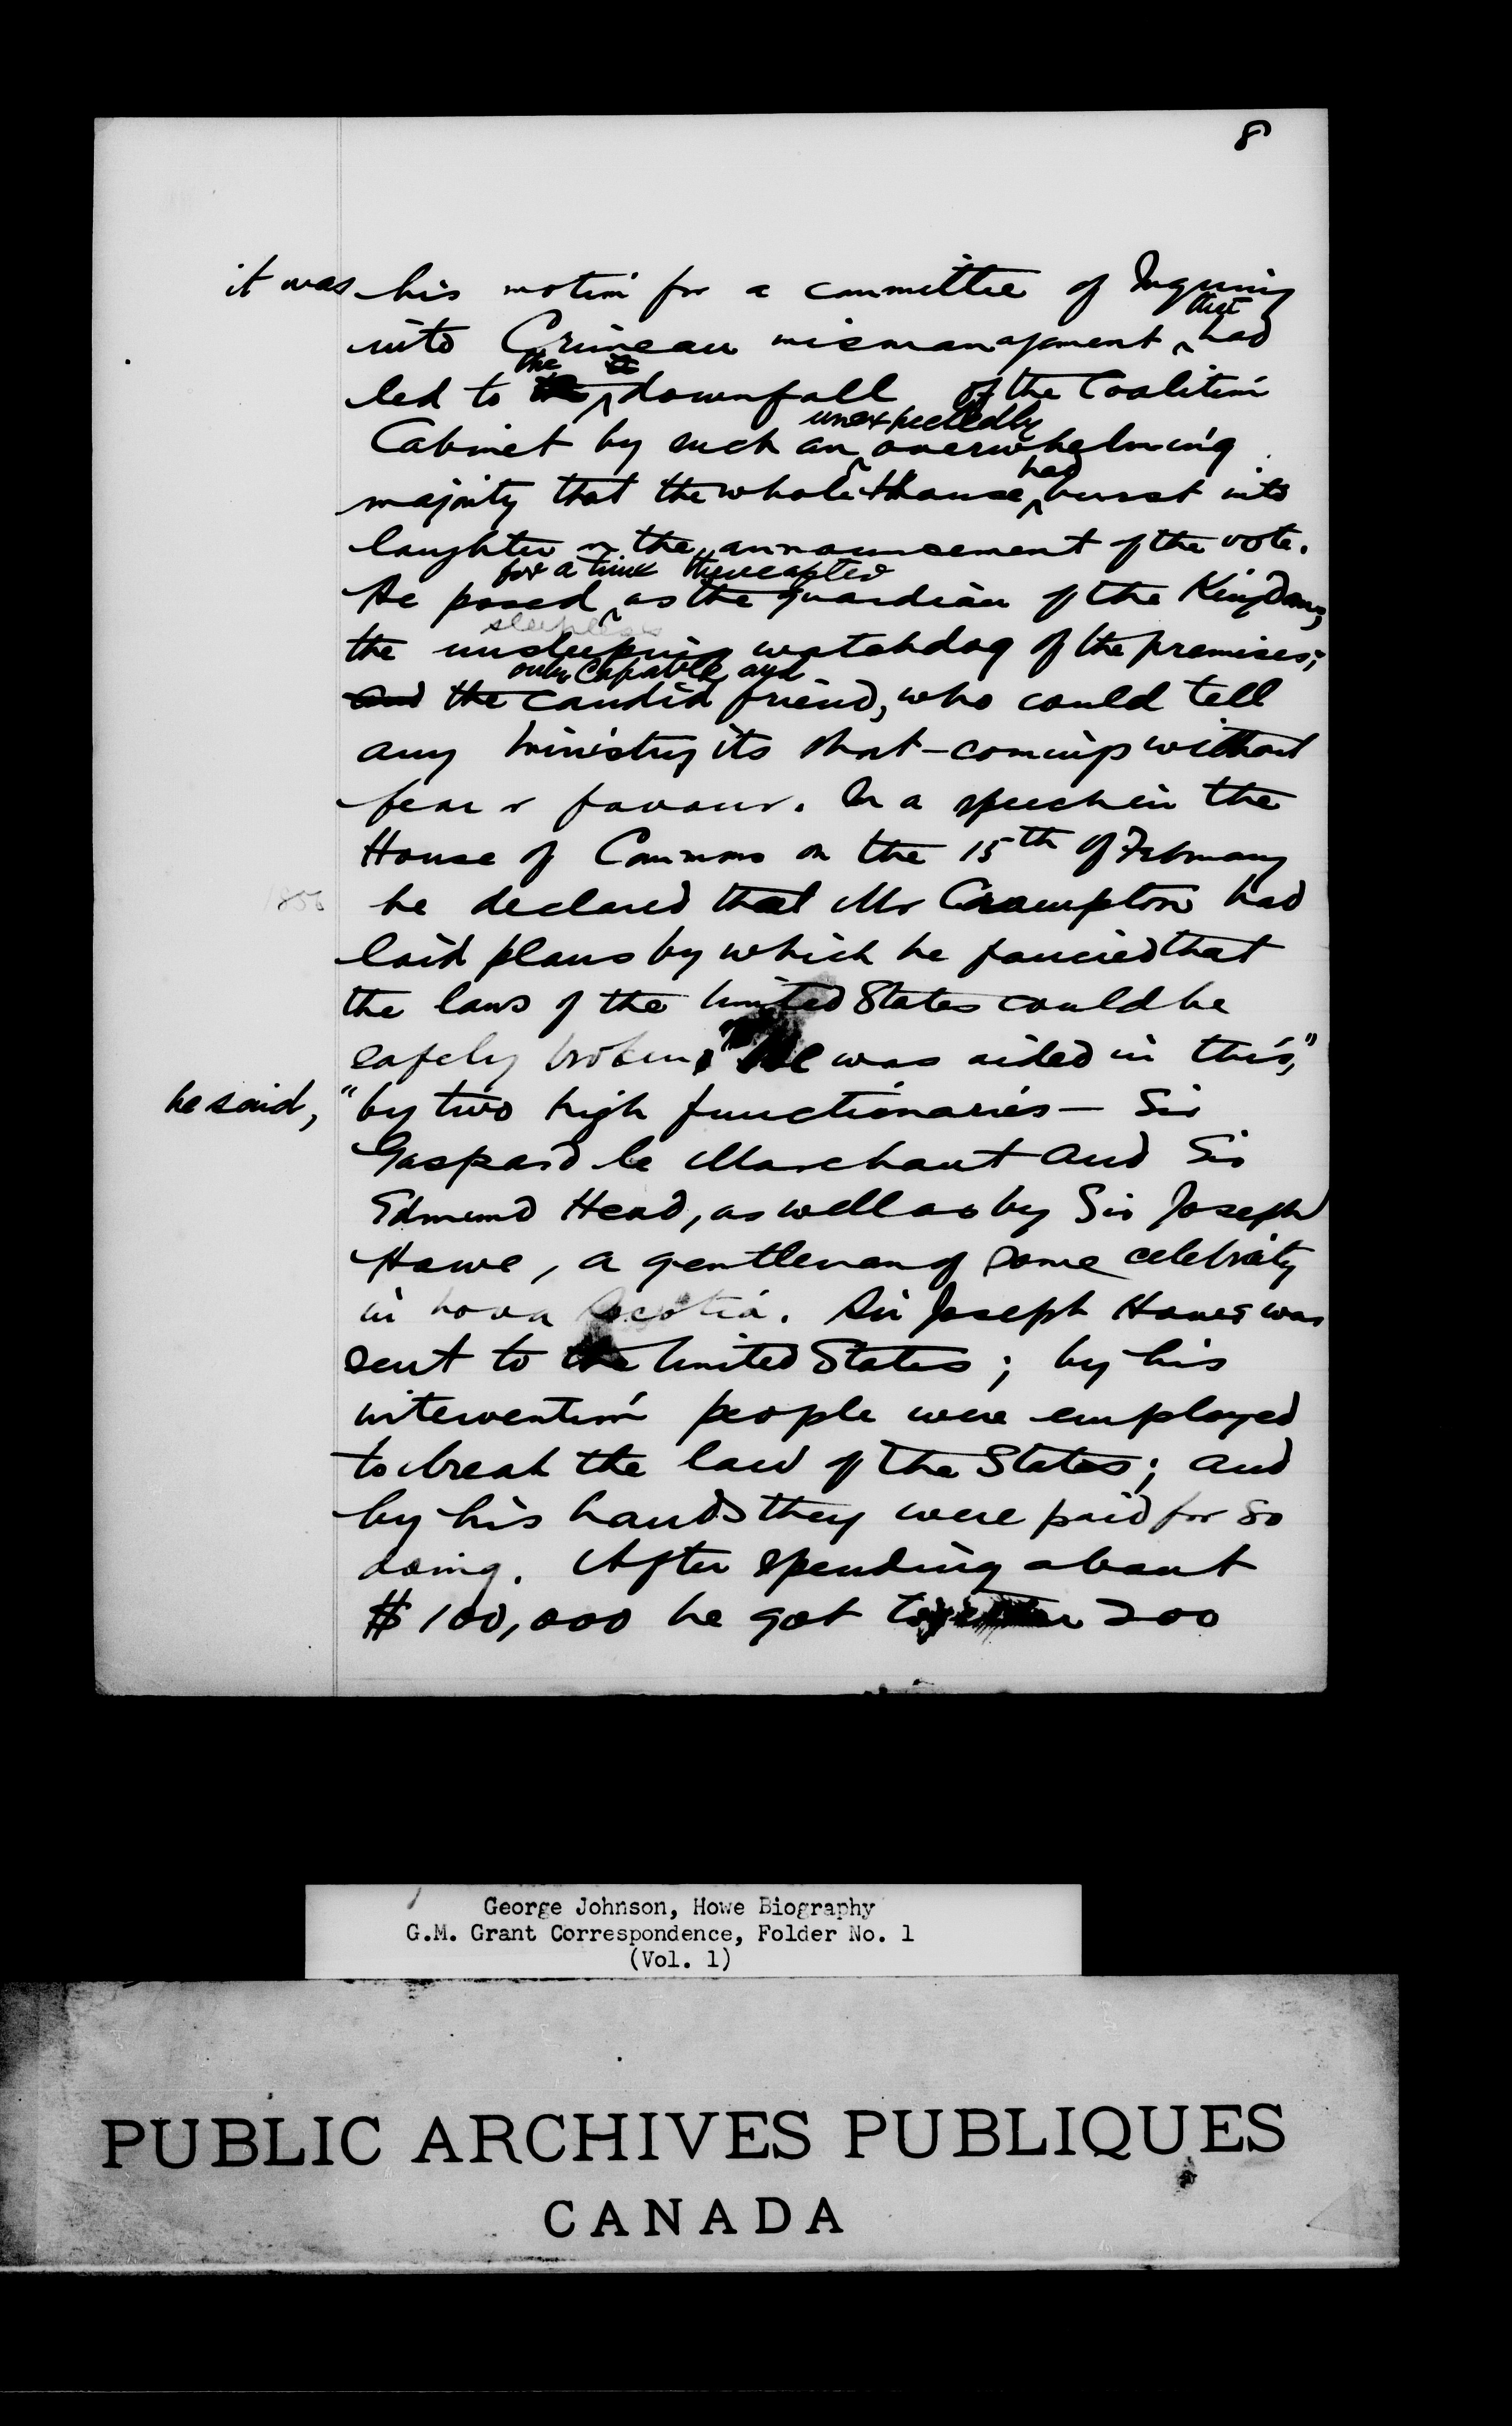 8
it was his motion for a committee of Inquiry
that
into Crimean mismanagement had
the
led to downfall of the Coalition
unexpectedly
Cabinet by such an overwhelming
had
majority that the whole House burst into
laughter on the announcement of the vote.
for a time thereafter
He posed as the guardian of the Kingdom,
sleepless
the unsleeping watchdog of the premises;
only capable and
and the candid friend, who could tell
any Ministry its short-comings without
fear or favour. In a speech in the
House of Commons on the 15th of February
1856 he declared that Mr Crampton had
laid plans by which he fancied that
the laws of the United States could be
safely broken, "He was aided in this,"
he said, "by two high functionaries — Sir
Gaspard le Marchant and Sir
Edmund Head, as well as by Sir Joseph
Howe, a gentleman of some celebrity
in Nova Scotia. Sir Joseph Howe was
sent to the United States; by his
intervention people were employed
to break the law of the States; and
by his hands they were paid for so
doing. After spending about
$100,000 he got together 200
George Johnson, Howe Biography
G.M. Grant Correspondence, Folder No. 1
(Vol. 1)
PUBLIC ARCHIVES PUBLIQUES
CANADA